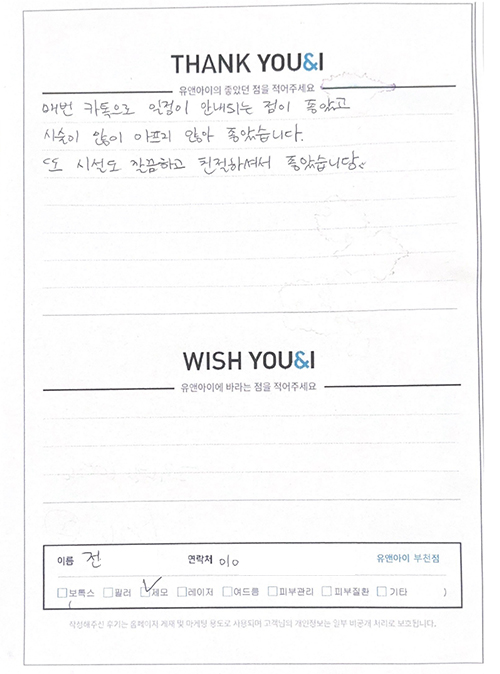 THANK YOU&I
유앤아이의 좋았던 점을 적어주세요
매번 카톡으로 일정이 안내되는 점이 좋았고
시술이 많이 아프지 않아 좋았습니다.
또 시설도 깔끔하고 친절하셔서 좋았습니당
WISH YOU&I
유앤아이에 바라는 점을 적어주세요
이름 전 연락처 010 유앤아이 부천점
□보톡스 □필러 □제모 □레이저 □여드름 □피부관리 □피부질환 □기타 )
작성해주신 후기는 홈페이지 게재 및 마케팅 용도로 사용되며 고객님의 개인정보는 일부 비공개 처리로 보호됩니다.